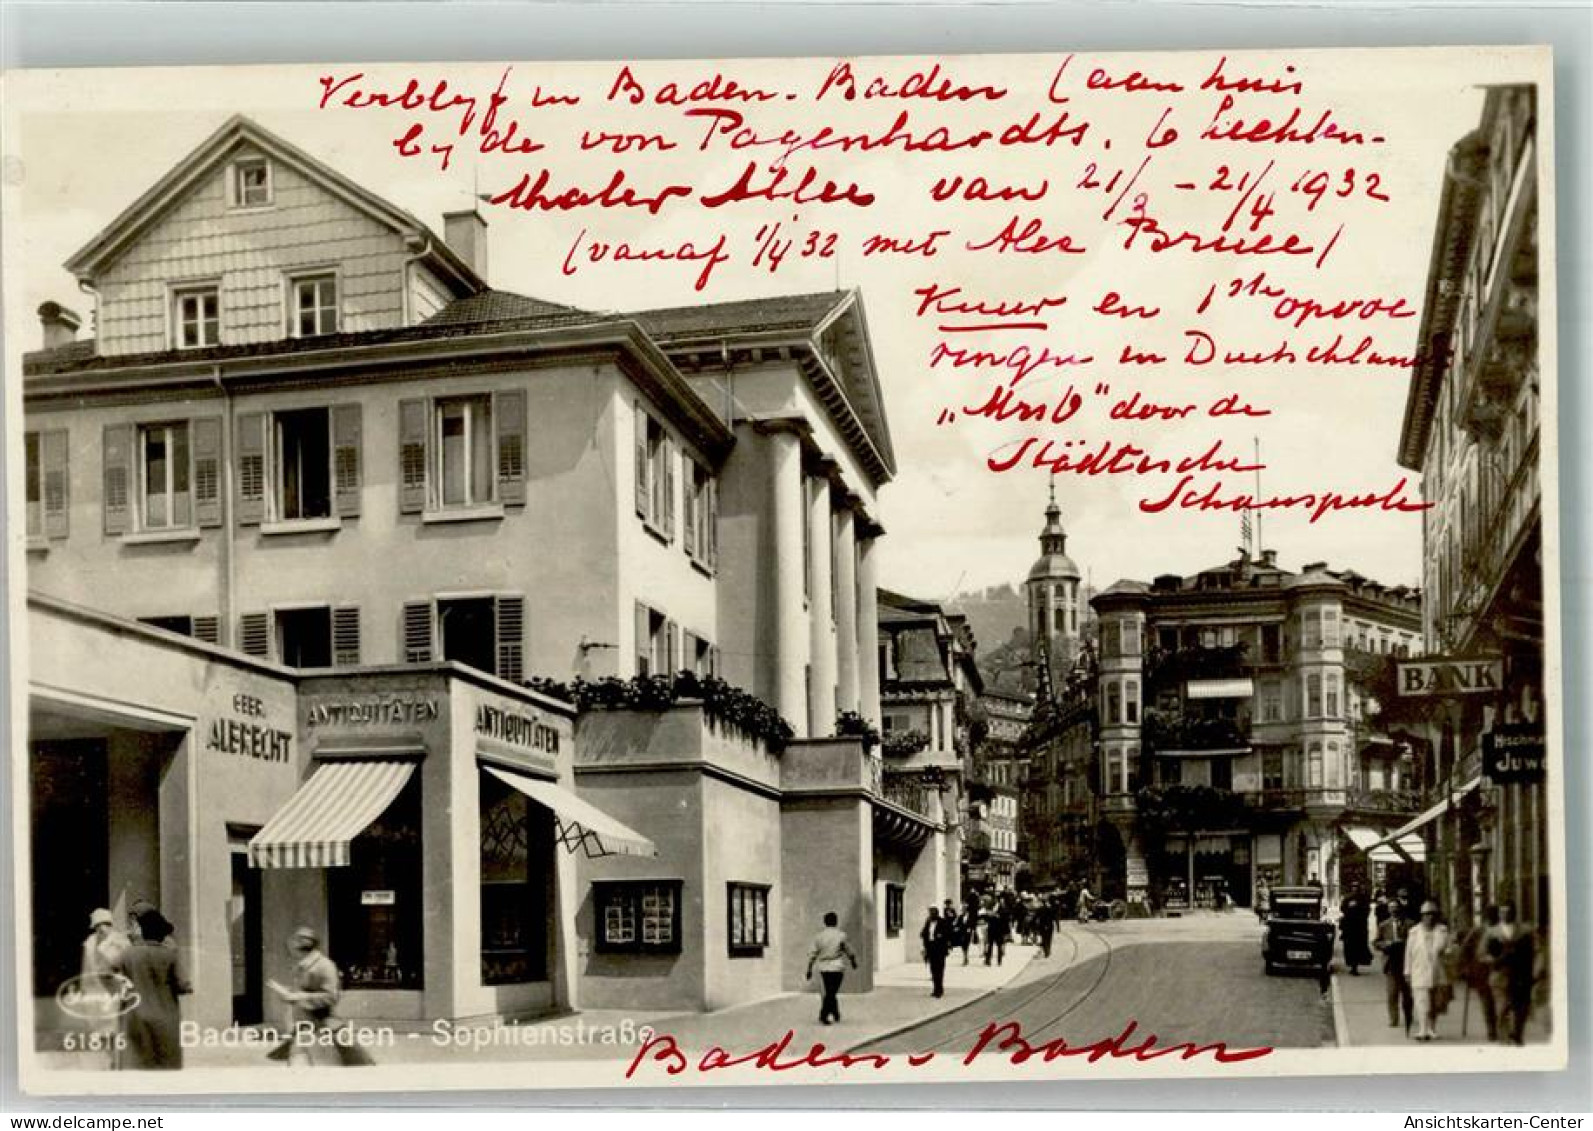 Verblyf in Baden-Baden (aan huis
by de von Pagenhardts, 6 Liechten-
thaler Allee van 21/3 - 21/4 1932
(vanaf 1/4 32 met Alec Bruce)
Kuur en 1ste opvoe
ringen in Duitschland
„Mrs V" door de
Städtische
Schauspiele
GEBR.
ALBRECHT
ANTIQUITÄTEN
ANTIQUITÄTEN
BANK
JUW
61816
Baden-Baden - Sophienstraße
Baden-Baden
Ansichtskarten-Center